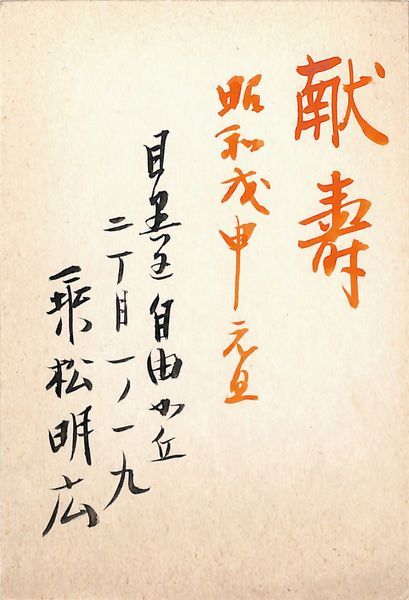 献寿
昭和戊申元旦
目黒区自由が丘
二丁目一ノ一九
乗松明広